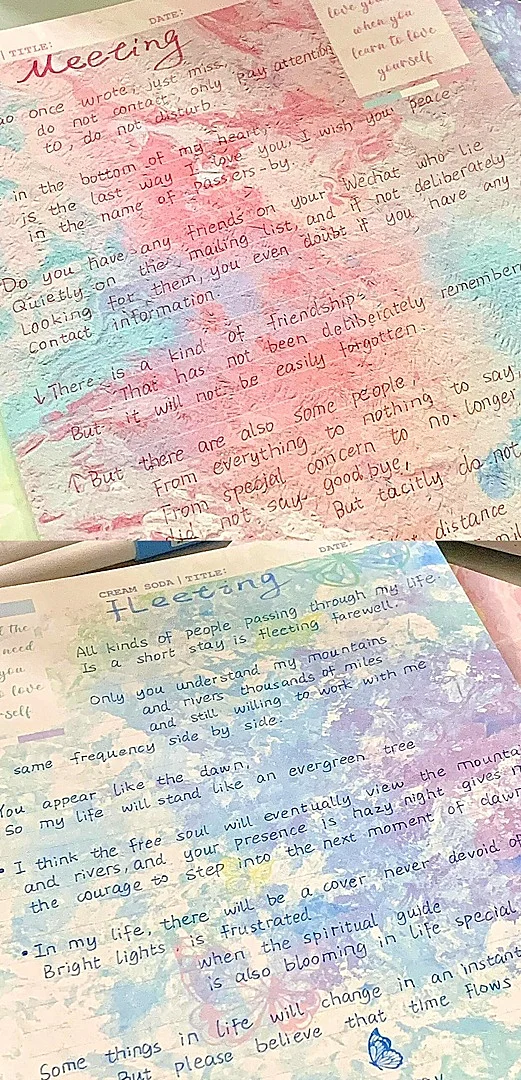 TITLE:
DATE:
Meeting
love you
when you
learn to love
yourself
once wrote, just miss,
do not contact, only pay attention
to, do not disturb
in the bottom of my heart,
is the last way I love you, I wish you peace
in the name of passers-by.
Do you have any friends on your Wechat who lie
Quietly on the mailing list, and if not deliberately
Looking for them, you even doubt if you have any
contact information.
↓ There is a kind of friendship
That has not been deliberately remember
But it will not be easily forgotten.
↑ But there are also some people,
From everything to nothing to say,
From special concern to no longer
did not say goodbye,
But tacitly do not
distance
CREAM SODA | TITLE:
DATE:
fleeting
the
need
you
love
self
All kinds of people passing through my life.
Is a short stay is flecting farewell.
Only you understand my mountains
and rivers thousands of miles
and still willing to work with me
same frequency side by side.
You appear like the dawn,
So my life will stand like an evergreen tree
• I think the free soul will eventually view the mounta
and rivers, and your presence is hazy night gives m
the courage to step into the next moment of dawn
• In my life, there will be a cover never devoid of
Bright lights. is frustrated
when the spiritual guide
is also blooming in life special,
Some things in life will change in an instant
But please believe that time flows